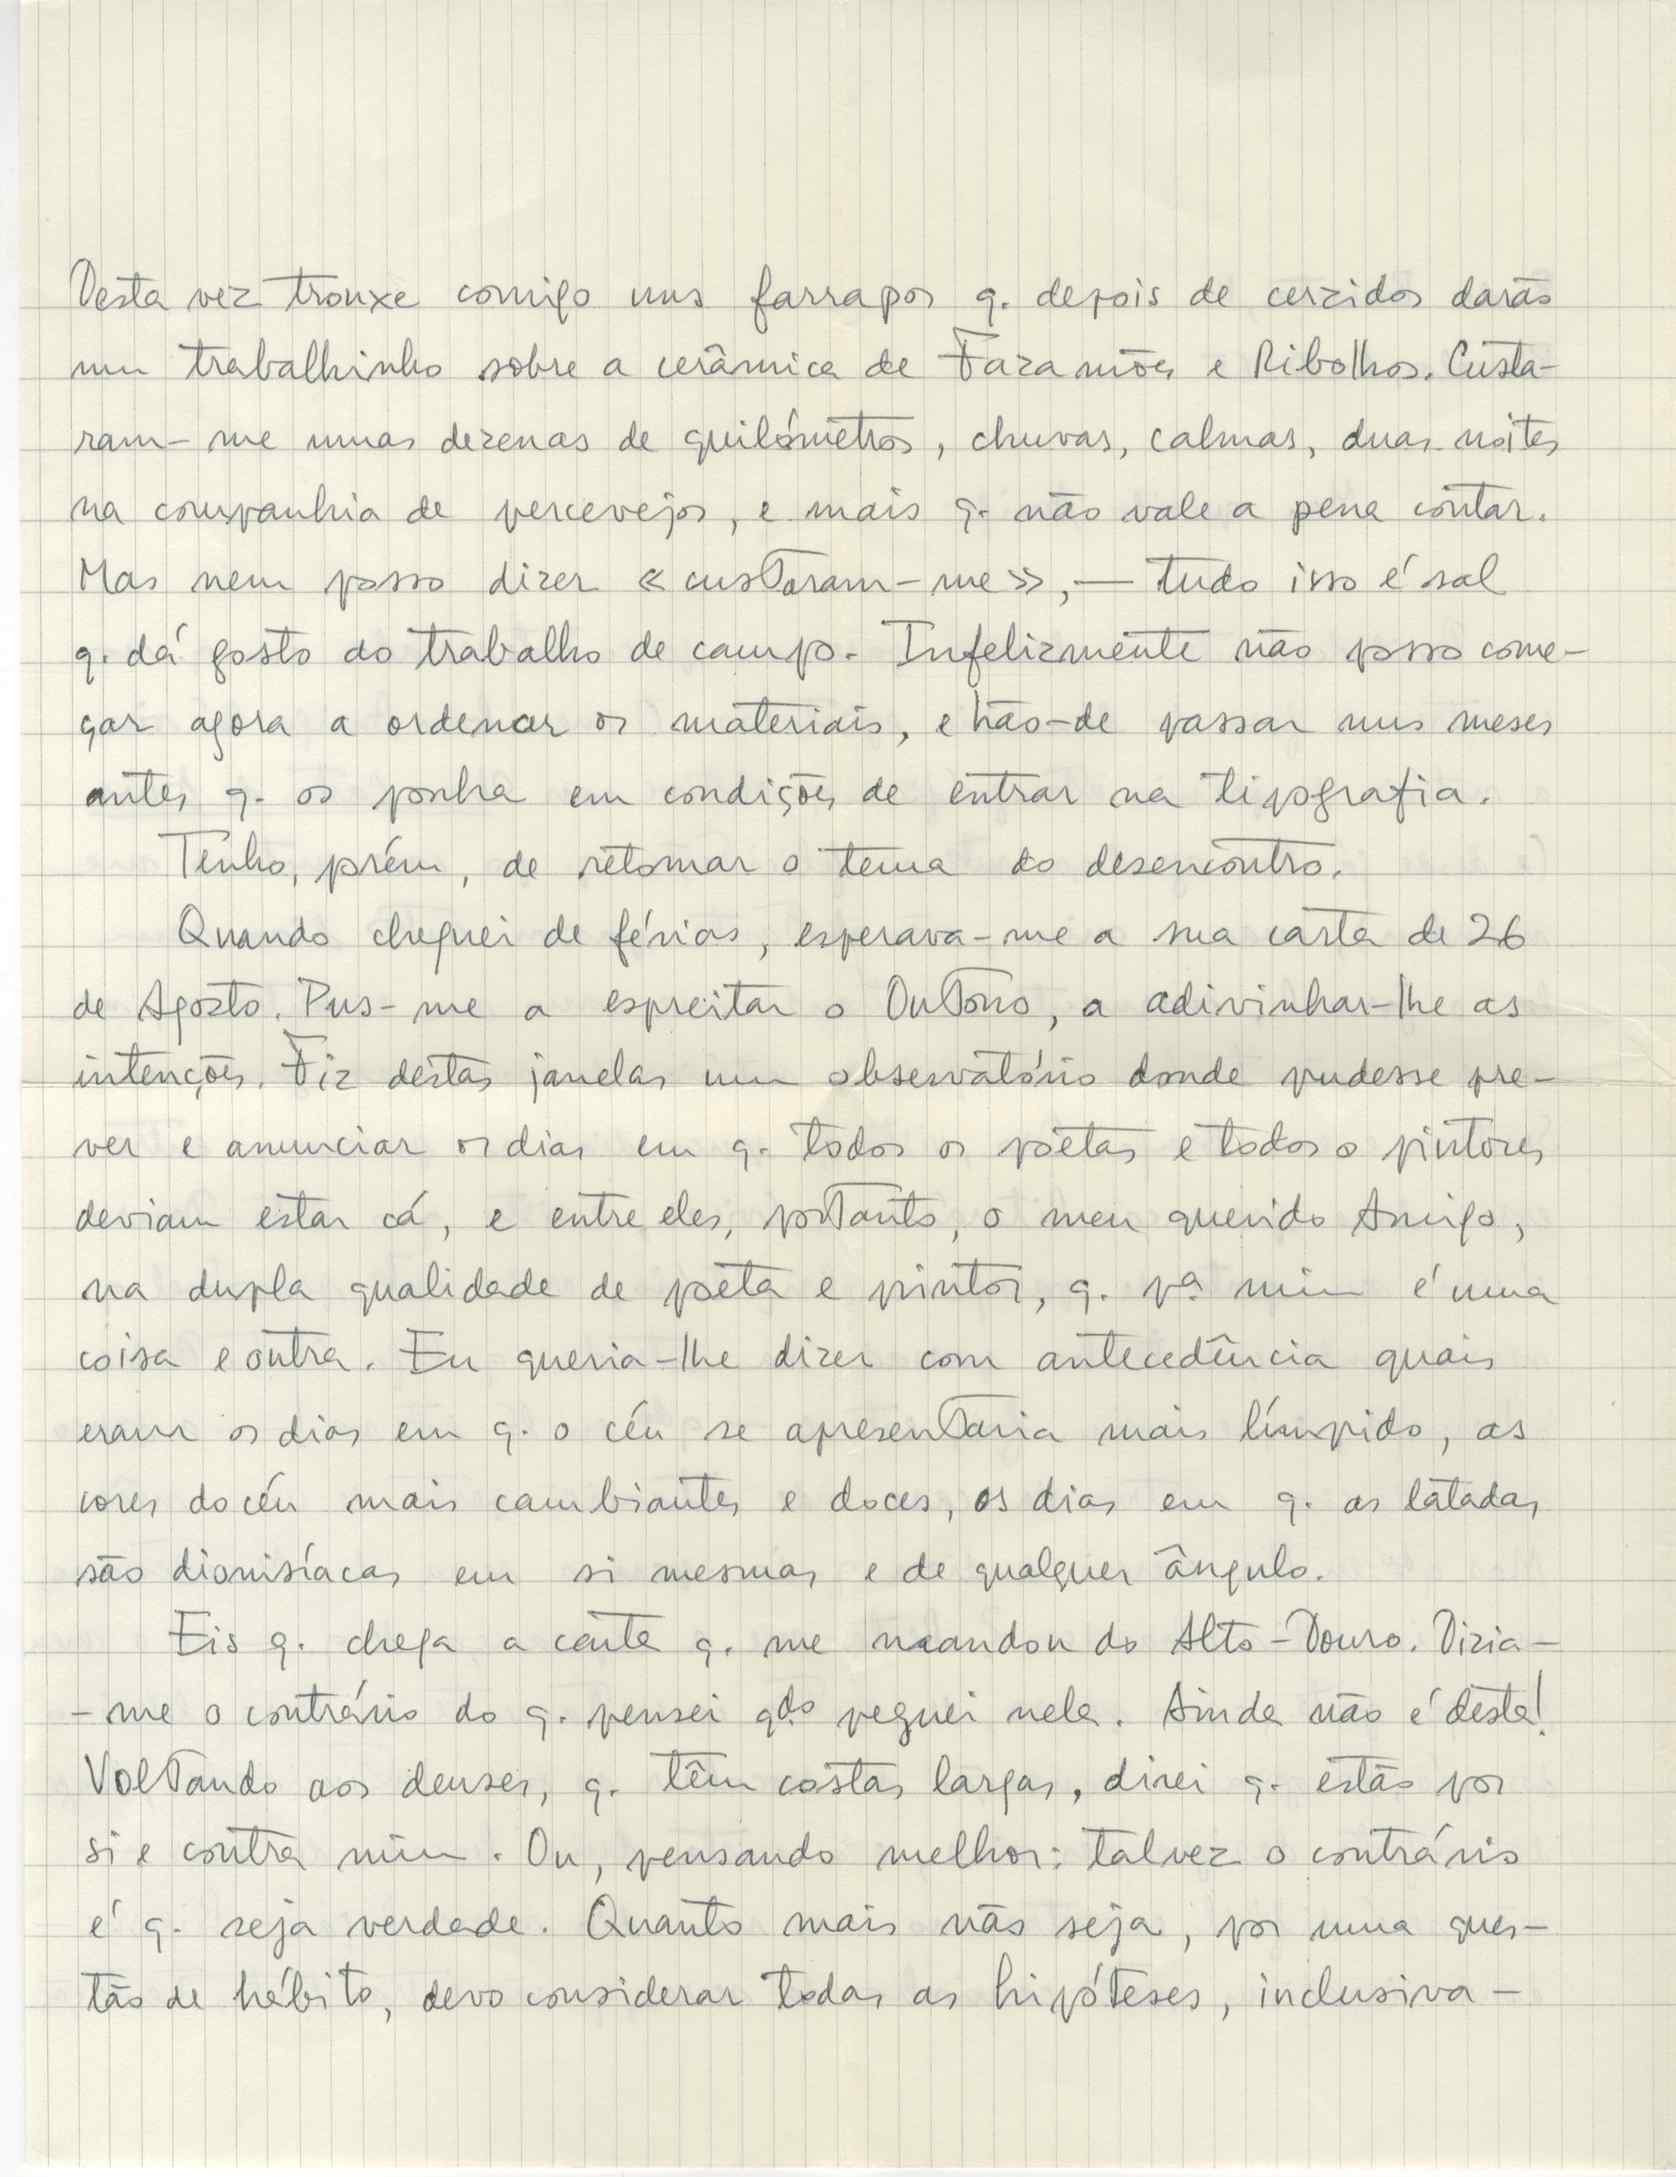 Desta vez trouxe comigo uns farrapos q. depois de cerzidos darão
um trabalhinho sobre a cerâmica de Fazamões e Ribolhos. Custa-
ram-me umas dezenas de quilómetros, chuvas, calmas, duas noites
na companhia de percevejos, e mais q. não vale a pena contar.
Mas nem posso dizer «custaram-me», — tudo isso é sal
q. dá gosto do trabalho de campo. Infelizmente não posso come-
çar agora a ordenar os materiais, e hão-de passar uns meses
antes q. os ponha em condições de entrar na tipografia.
Tenho, porém, de retomar o tema do desencontro.
Quando cheguei de férias, esperava-me a sua carta de 26
de Agosto. Pus-me a espreitar o Outono, a adivinhar-lhe as
intenções. Fiz destas janelas um observatório donde pudesse pre-
ver e anunciar os dias em q. todos os poetas e todos o pintores
deviam estar cá, e entre eles, portanto, o meu querido Amigo,
na dupla qualidade de poeta e pintor, q. pª mim é uma
coisa e outra. Eu queria-lhe dizer com antecedência quais
eram os dias em q. o céu se apresentaria mais límpido, as
cores do céu mais cambiantes e doces, os dias em q. as latadas
são dionisíacas em si mesmas e de qualquer ângulo.
Eis q. chega a carta q. me mandou do Alto-Douro. Dizia-
-me o contrário do q. pensei qdo peguei nela. Ainda não é desta!
Voltando aos deuses, q. têm costas largas, direi q. estão por
si e contra mim. Ou, pensando melhor: talvez o contrário
é q. seja verdade. Quanto mais não seja, por uma ques-
tão de hábito, devo considerar todas as hipóteses, inclusiva-